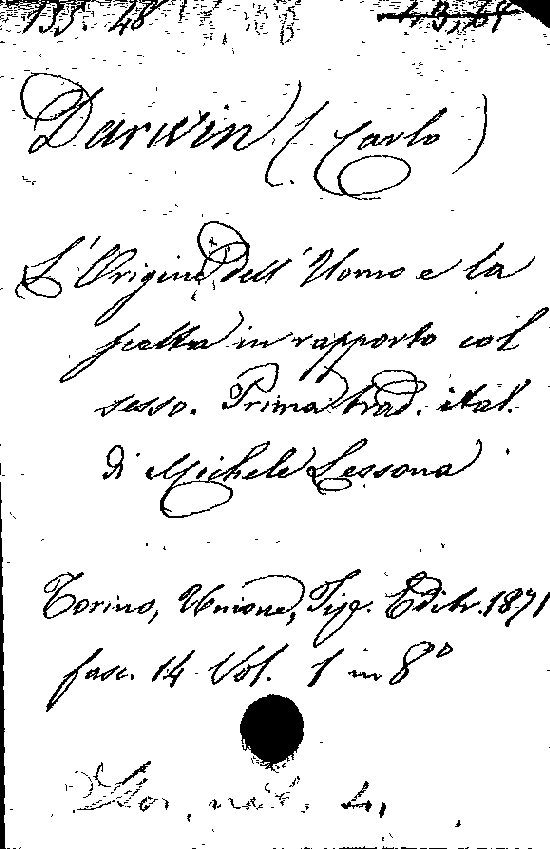 135. 48
Darwin (Carlo)
L'Origine dell' Uomo e la
scelta in rapporto col
sesso. Prima trad. ital.
di Michele Lessona
Torino, Unione, Tip. Editr. 1871
fasc. 14 Vol. 1 in 8°
Stor. nat.